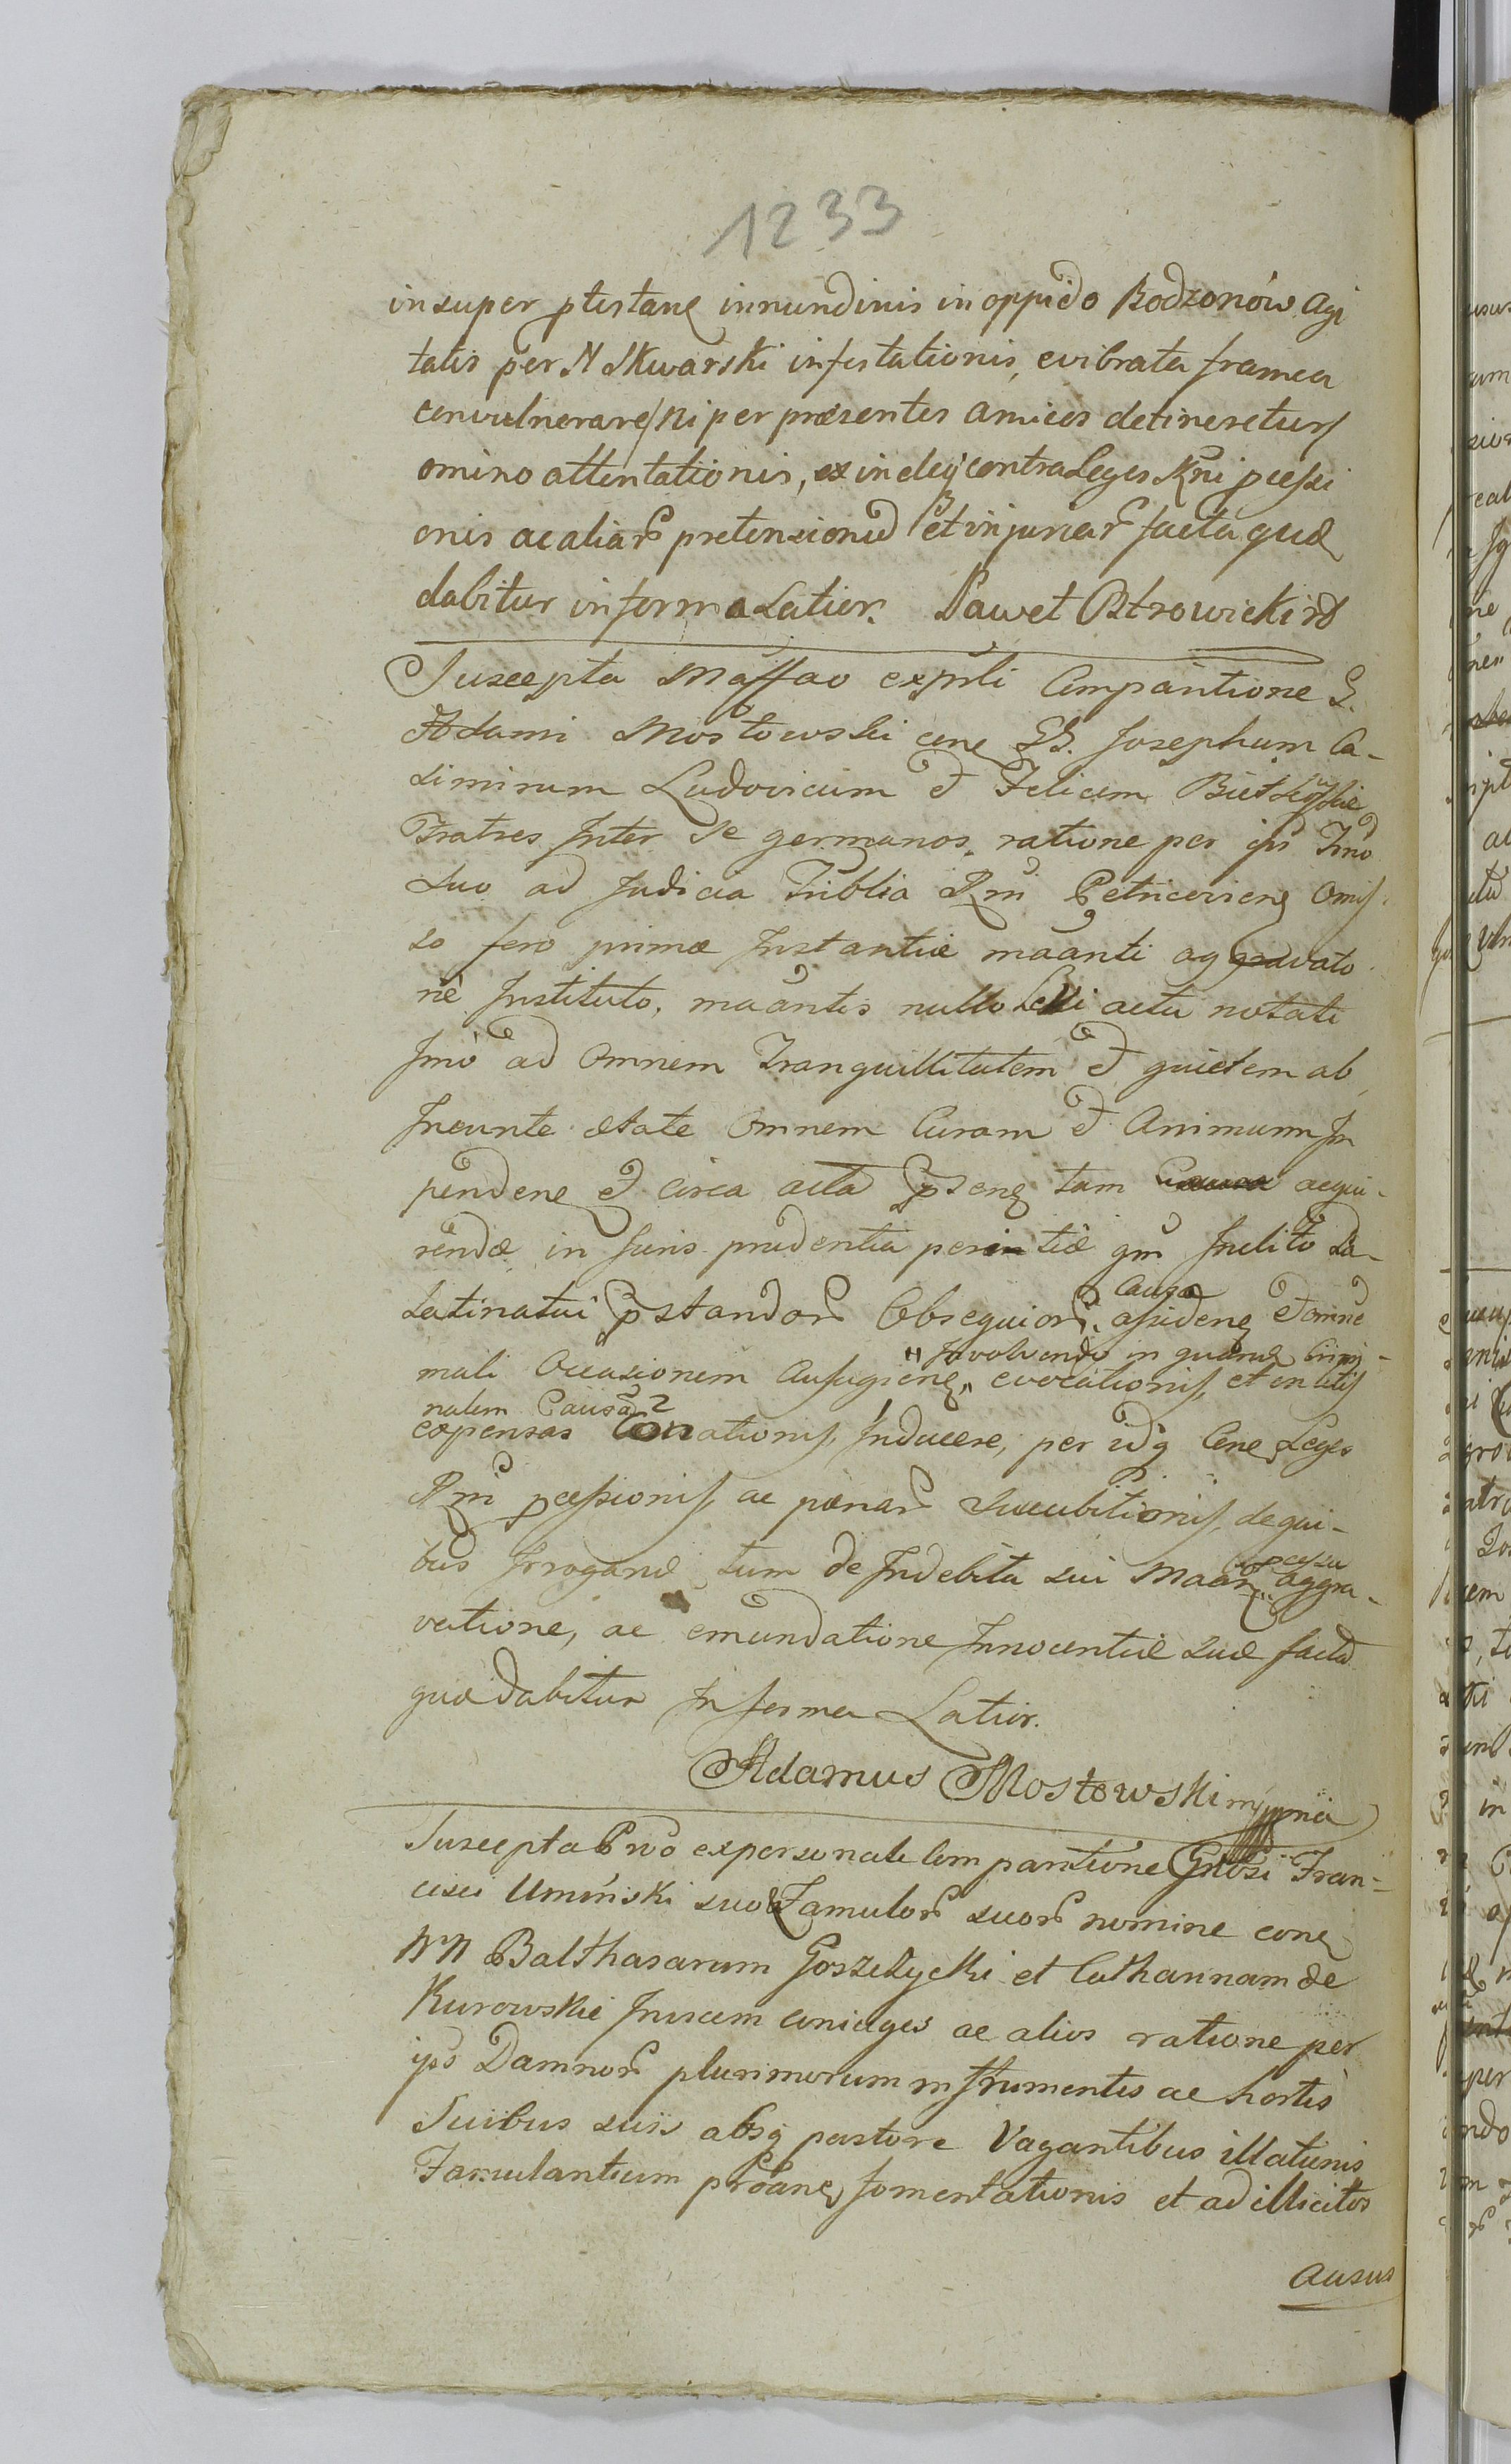 1233
insuper ptestane innundinis in oppido Bodzonów Agi
tatis per N Skwarski infestationis, evibrata framea
convulnerare/ni per præsentes amicos detineretur/
omino attentationis, ex indeq contra Leges Rni pcessi
onis ac aliar pretensionu et injuriar facta quæ
dabitur in forma Latior. Paweł Ostrowicki
Suscepta Maffao exprli Compantione G.
Adami Mostowski cone GG. Josephum Ca-
simirum Ludovicum et Felicem
Fratres Inter se germanos, ratione per ips Imo
suo ad Judicia Triblia Rni Petricovien Omis-
so fero primæ Instantiæ maanti aggravato
ne Instituto, maantis nullo actu notati
Imò ad Omnem Tranquillitatem et quietem ab
Ineunte ætate Omnem Curam et Animum Im
pendene et circa acta psene tam acqui-
rendæ in Juris prudentia peritiæ qm Inclito Pa-
causa
latinatui pstandor Obsequior, assidene et omne
" Involvendo in quand Crimi-
mali Occasionem Aufugiene, evocationis, et in litis
nalem Causa
expensas Conationis, Inducere, per idq Cone Leges
Rni pcessionis, ac pænar Succubitionis, de qui-
bus Irrogand tum de Indebita sui Maan pcessu aggra-
vatione, ac emundatione Innocentiæ suæ facta
quæ dabitur In forma Latior.
Adamus Mostowski mppria
Suscepta Prvo expersonali Compantione Gnosi Fran=
cisci Umiński suo & Famulor suor nomine cone
NN Balthasarum Goszczycki et Catharinam de
Kurowskie Invicem coniuges ac alios ratione per
ips Damnor plurimorum in frumentis ac hortis
Suibus suis absq pastore Vagantibus illationis
Famulantium proane fomentationis et ad illicitos
Ausus